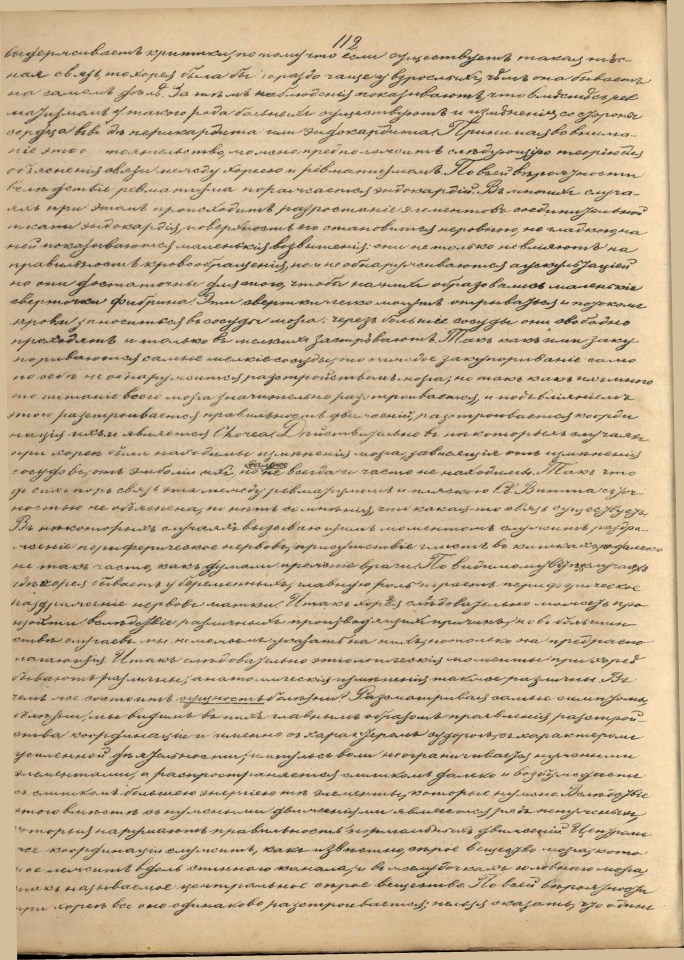 112
выдерживаетъ критики, потому что если существуетъ такая тѣс-
ная связь то хорея была бы гораздо чаще у взрослыхъ, чѣмъ она бываетъ
на самомъ дѣлѣ. Затѣмъ наблюденія показываютъ, что вмѣстѣ съ рев
матизмомъ у такого рода больныхъ существуютъ и измѣненія со стороны
сердца въ видѣ перикардита или эндокардита. Принимая во внима-
ніе это о тоятельство, можно предположить слѣдующую теорію для
объясненія связи между хореею и ревматизмомъ. По всей вѣроятности
вслѣдствіе ревматизма поражается эндокардій. Въ многихъ случа-
яхъ при этомъ происходитъ разростаніе элементовъ соединительной
ткани эндокардія, поверхность его становится неровною, не гладкою, на
ней показываются маленькія возвышенія: они не только не вліяютъ на
правильность кровообращенія, но и не обнаруживаются аускультаціей
но они достаточны для того, чтобы на нихъ образовались маленькіе
сверточки фибрина. Эти свертки легко могутъ открываться и токомъ
крови заноситься въ сосуды мозга: черезъ большіе сосуды они свободно
проходятъ и только въ мелкихъ застрѣваютъ. Такъ какъ ими заку
пориваются самые мелкіе сосуды, то никакое закупориваніе само
по себѣ не обнаружится разстройствомъ мозга; но такъ какъ ихъ много
то питаніе всего мозга значительно разстроивается, и подъ вліяніемъ
этого разстроивается правильность движеній, разстроивается коорди
нація ихъ и является Chorea. Дѣйствительно въ нѣкоторыхъ случаяхъ
при хореѣ были находимы измѣненія мозга, зависящія отъ измѣненія
сосудовъ, отъ эмболіи ихъ, но далеко не всегда и часто не находимы. Такъ что
до сихъ поръ связь эта между ревматизмомъ и пляскою Св. Витта съ точ-
ностью не объяснена, но нѣтъ сомнѣнія, что какая то связь существуетъ.
Въ нѣкоторыхъ случаяхъ вызывающимъ моментомъ служитъ раздра-
женіе периферическое нервовъ, присутствіе глистъ въ кишкахъ, хотя далеко
не такъ часто, какъ думали прежніе врачи. По видимому въ тѣхъ случаяхъ
гдѣ хорея бываетъ у беременныхъ, главную роль играетъ периферическое
раздраженіе нервовъ матки. И такъ хорея слѣдовательно можетъ про
изойти вслѣдствіе различныхъ производящихъ причинъ; но въ большин
ствѣ случаевъ мы не можемъ указать на нихъ, но только на предраспо
лагающія. И такъ слѣдовательно этіологическія моменты при хореѣ
бываютъ различны, анатомическія измѣненія также различны. Въ
чемъ же состоитъ сущность болѣзни? Разсматривая самые симптомы
болѣзни, мы видимъ въ нихъ главнымъ образомъ проявленія разстрой-
ства координаціи и именно съ характеромъ судорогъ, съ характеромъ
усиленной дѣятельности; импульсъ воли не ограничивается нужными
элементами, а распространяется слишкомъ далеко и возбуждаетъ
съ слишкомъ большою энергіею тѣ элементы, которые нужно. Вслѣдствіе
этого вмѣстѣ съ нужными движеніями является рядъ ненужныхъ
которыя нарушаютъ правильность нормальныхъ движеній. Центромъ
же координаціи служитъ, какъ извѣстно, сѣрое вещество мозга, кото
рое лежитъ вдоль спинного канала и въ желудочкахъ головного мозга
такъ называемое центральное сѣрое вещество. По всей вѣроятности
при хореѣ все оно одинаково разстроивается; нельзя сказать, что одине